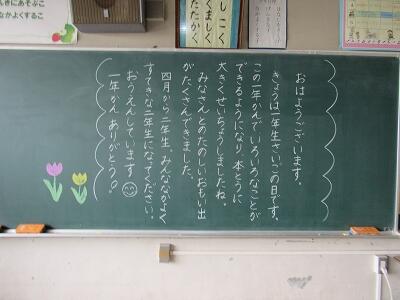 しこく
くましく
たたかく
んきにあそぶこ
なかよくするこ
おはようございます。
きょうは一年生さいごの日です。
この一年かんで、いろいろなことが
できるようになり、本とうに
大きくせいちょうしましたね。
みなさんとのたのしいおもい出
がたくさんできました。
四月から二年生。みんななかよく
すてきな二年生になってください。
おうえんしています
一年かん ありがとう!